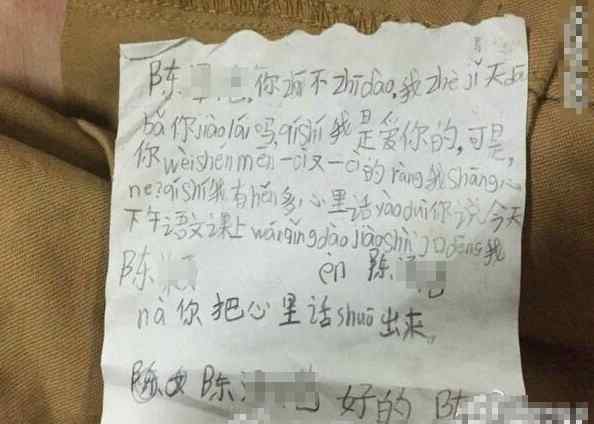 陈 你zhī不zhīdào,我zhè jǐ天dōu
bǎ你jiào lái吗,qíshí我是爱你的,可是,
你wèishénmen一cì又一cì的ràng我shāng心
ne?qíshí我有hěn多心里话yào duì你说今天
下午语文课上wán qǐng dào jiàoshì门口děng我
陈 èn 陈
nà你把心里话shuō出来。
陈 好的